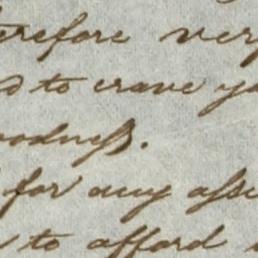 therefore very
to crave yo
goodness.
for any assi
to afford